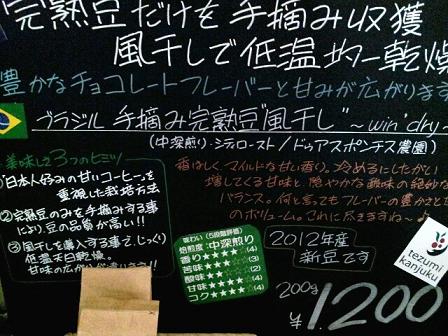 完熟豆だけを手摘み収獲
風干しで低温均一乾燥
豊かなチョコレートフレーバーと甘みが広がります
ブラジル 手摘み完熟豆"風干し"~win dry~
(中深煎り・シティロースト/ドゥアスポンチス農園)
美味しさ3つのヒミツ
①日本人好みの甘いコーヒーを
重視した栽培方法
②完熟豆のみを手摘みする事
により豆の品質が高い!!
③風干しを購入する事で、じっくり
低温天日乾燥。
甘味の広がりが違います!!
香ばしくマイルドな甘い香り。冷めるにしたがい
増してくる甘味と穏やかな酸味の絶妙な
バランス。何と言ってもフレーバーの豊かさと
のボリューム。これに尽きますね~♪
味わい(5段階評価)
焙煎度 中深煎り
香り★★★★(4)
苦味★★★(3)
酸味★★(2)
甘味★★★★(4)
コク★★★★(4)
2012年産
新豆です
200g
¥1200
tezumi
kanjuku